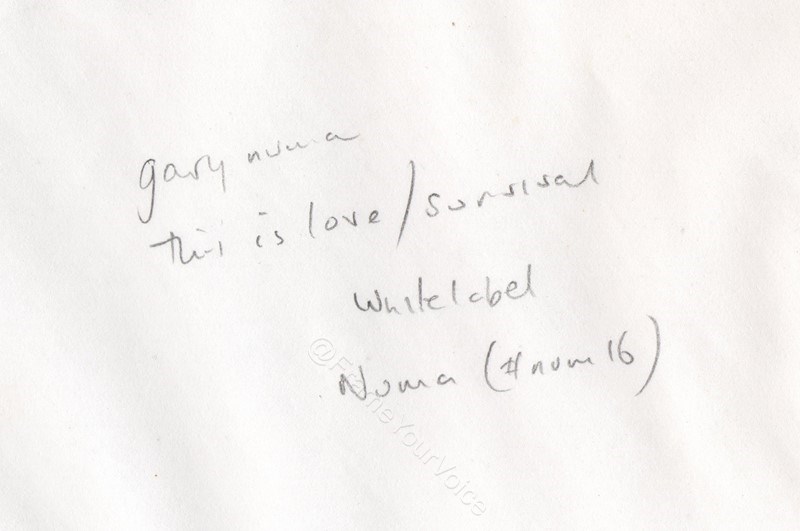 gary numa
this is love/survival
Whitelabel
Numa (#num 16)
@FrameYourVoice